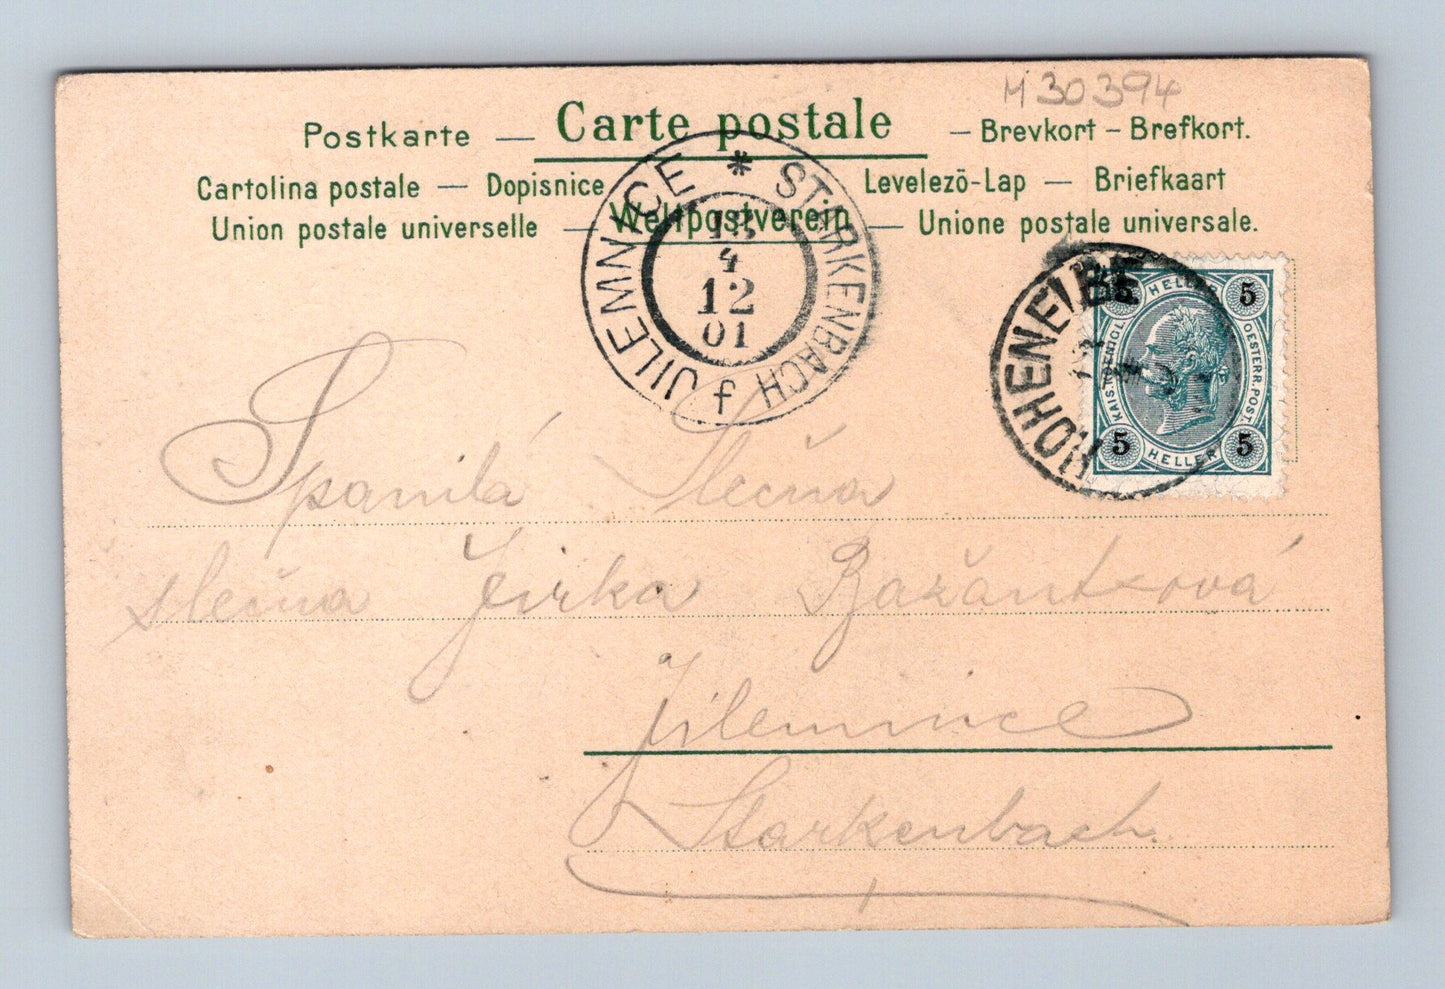 M 30394
Postkarte — Carte postale — Brevkort – Brefkort.
Cartolina postale — Dopisnice Levelező-Lap — Briefkaart
Union postale universelle — Weltpostverein — Unione postale universale.
JILEMNICE * STARKENBACH f
13
4
12
01
HOHENELBE
5 HELLER 5
KAIS. KOENIGL. OESTERR. POST
5 HELLER 5
Spanilá Slečna
slečna Jirka Bažantová
Jilemnice
Starkenbach.